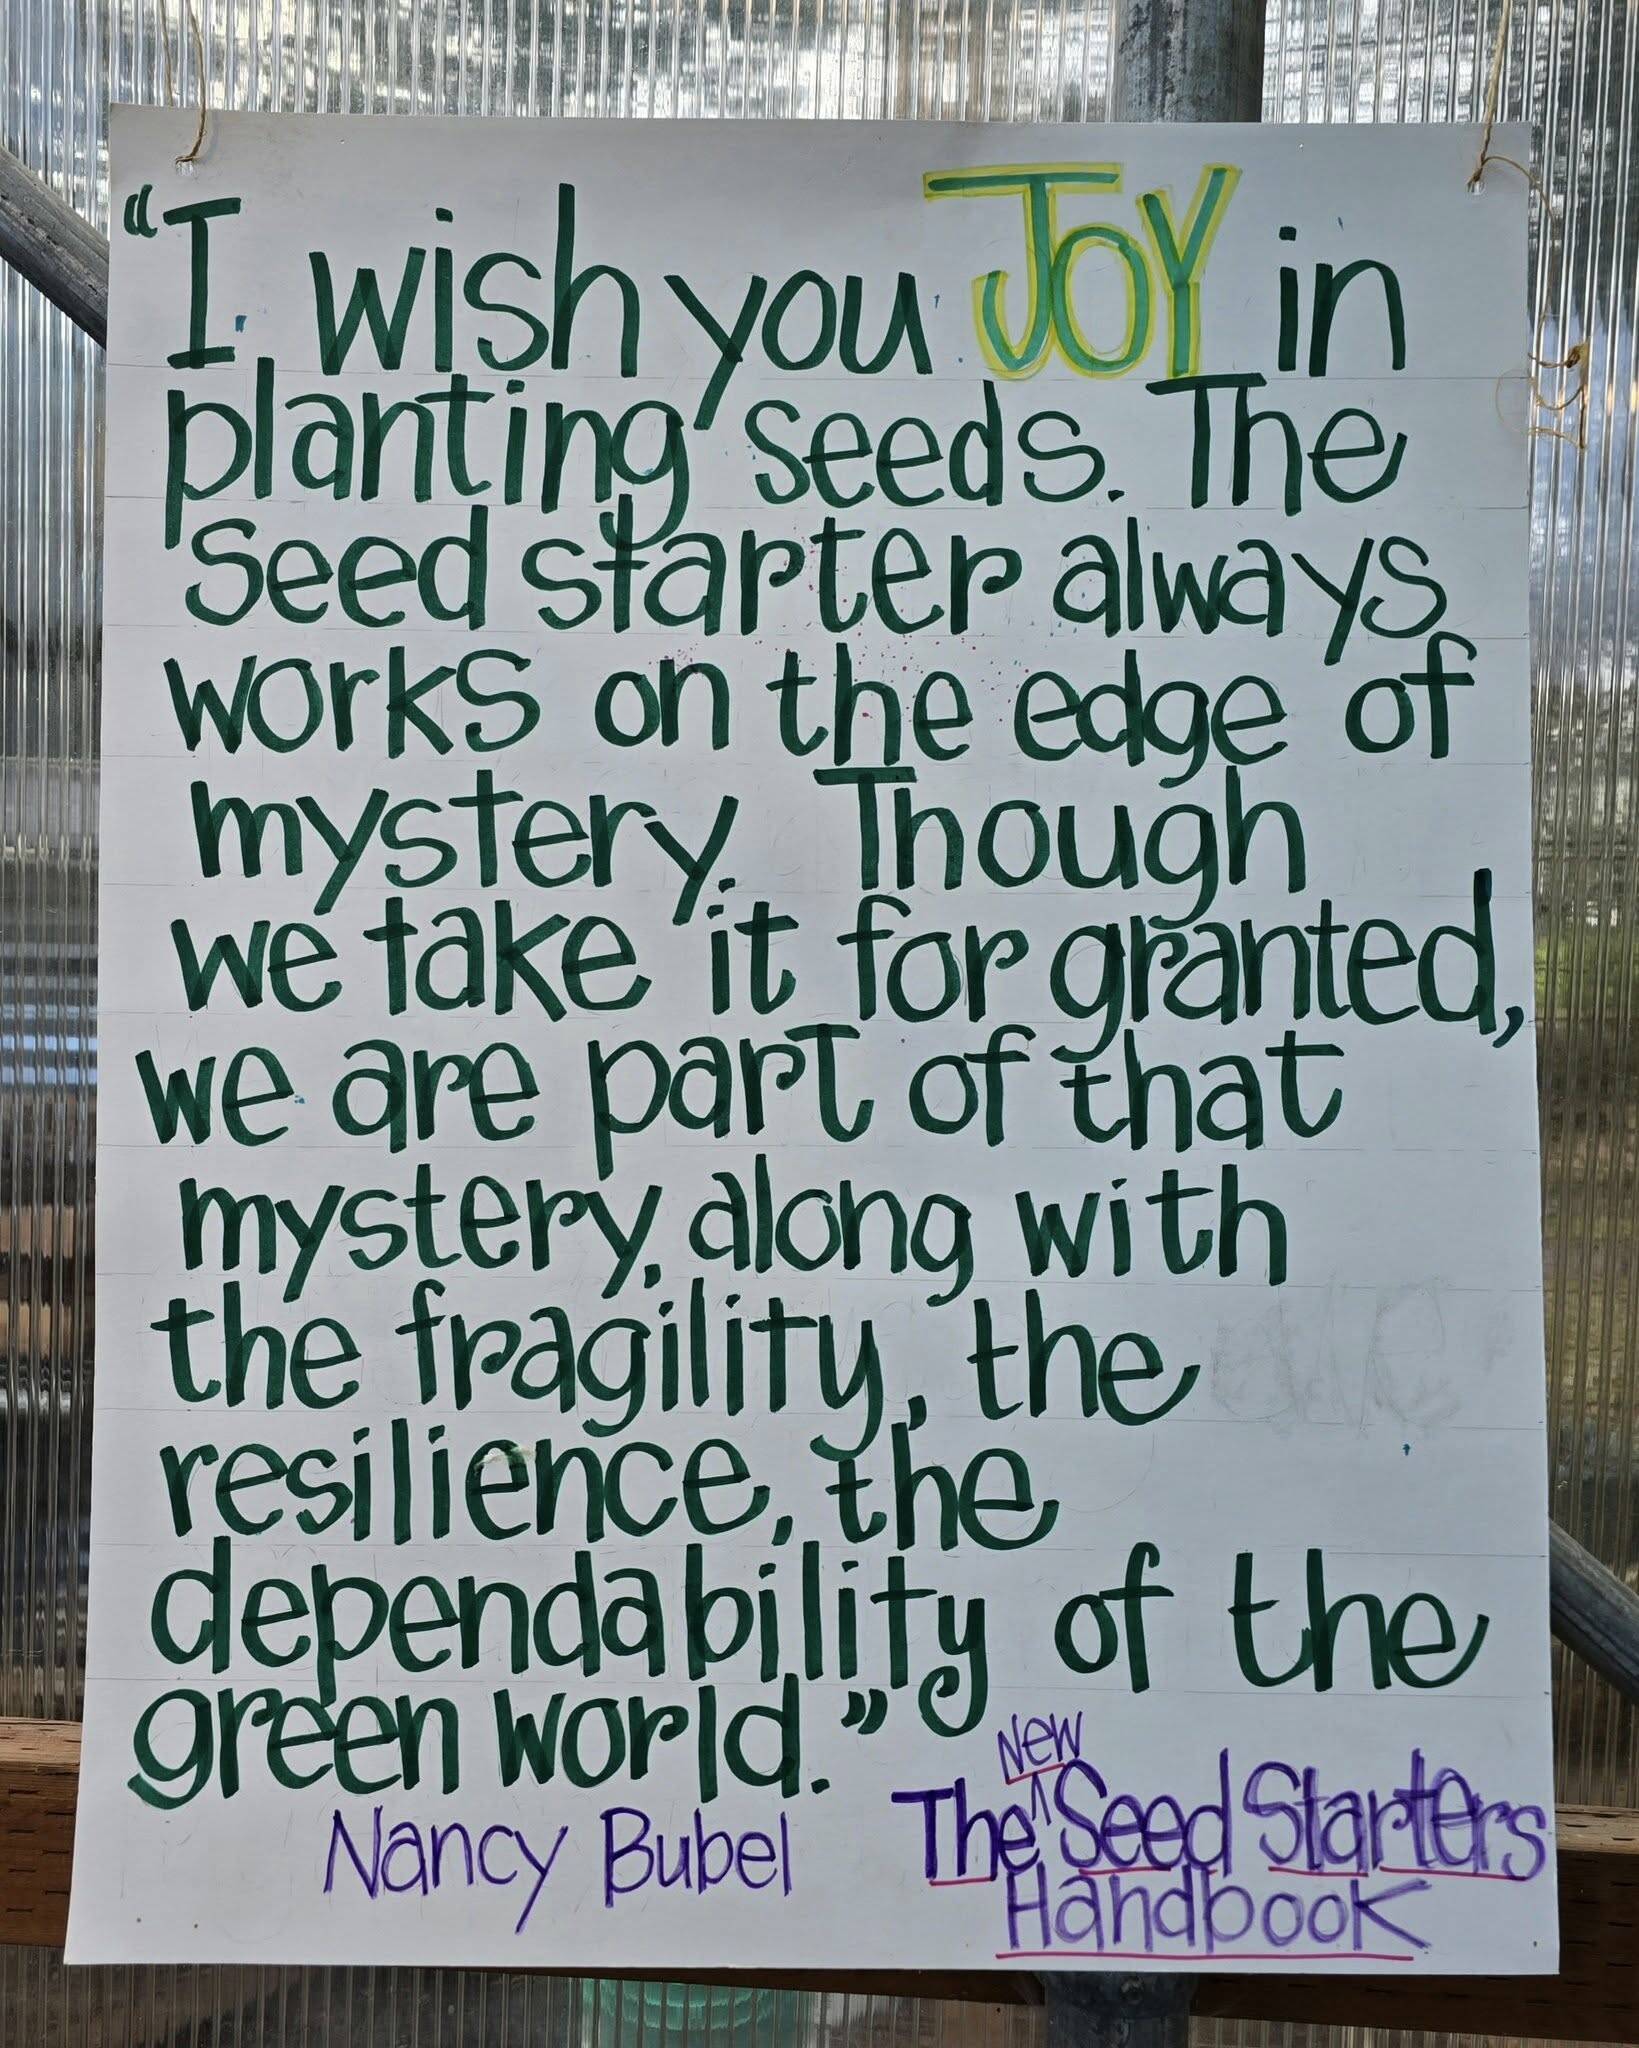 "I wish you JOY in
planting seeds. The
Seed starter always
works on the edge of
mystery. Though
we take it for granted,
we are part of that
mystery, along with
the fragility, the
resilience, the
dependability of the
green world."
Nancy Bubel
The New Seed Starters
Handbook